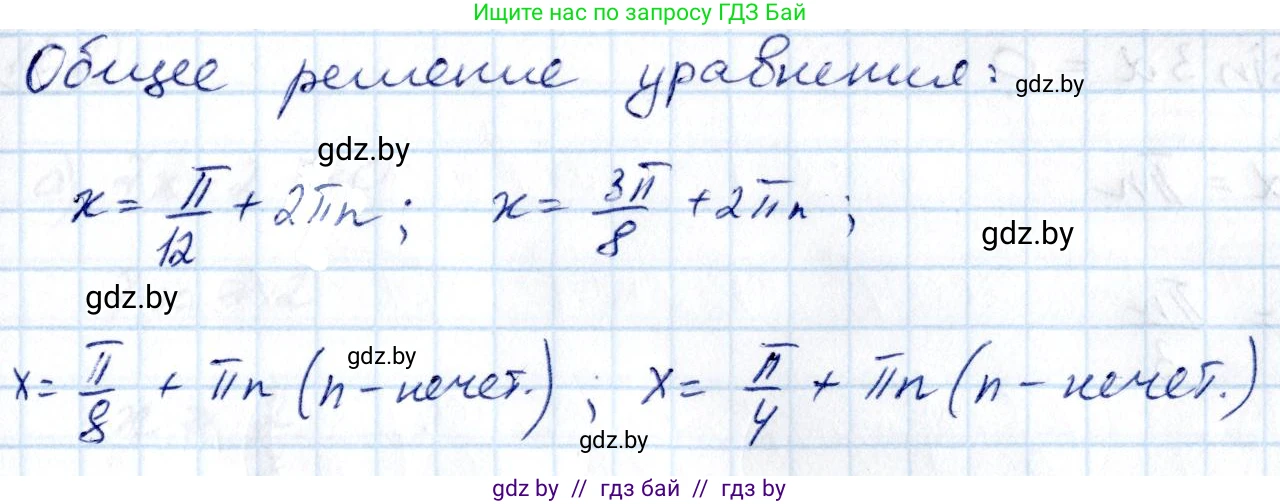 Ищите нас по запросу ГДЗ Бай
Общее решение уравнения: gdz.by
gdz.by
x = π/12 + 2πn; x = 3π/8 + 2πn;
gdz.by
gdz.by
gdz.by
x = π/8 + πn (n - нечет.); x = π/4 + πn (n - нечет.)
gdz.by
gdz by // гдз бай // гдз by